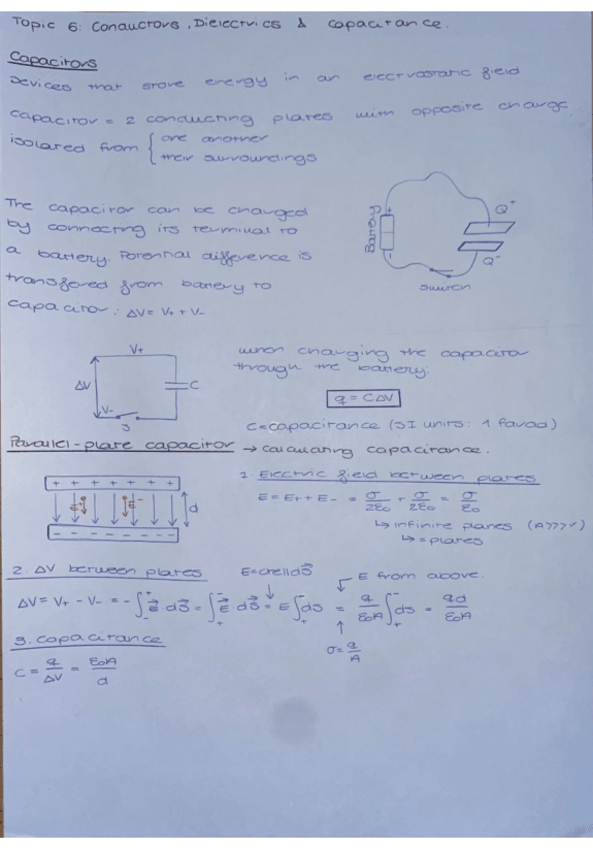 Topic 6: Conductors, Dielectrics & capacitance.
Capacitors
Devices that store energy in an electrostatic field
Capacitor = 2 conducting plates with opposite charge
isolated from { one another
their surroundings
The capacitor can be charged
by connecting its terminal to
a battery. Potential difference is
transfered from battery to
capacitor: ΔV = V+ + V-
Battery
+
-
Q+
Q-
switch
V+
ΔV
C
V-
S
when charging the capacitor
through the battery:
q = CΔV
C = capacitance (SI units: 1 farad)
Parallel-plate capacitor → calculating capacitance.
+ + + + + + +
E+ E- d
- - - - - - -
1. Electric field between plates
E = E+ + E- = σ/2ε0 + σ/2ε0 = σ/ε0
↳ infinite planes (A>>>>)
↳ = plates
2. ΔV between plates
E = cte || dS⃗
E from above.
ΔV = V+ - V- = -∫₋⁺ E⃗ dS⃗ = ∫₊⁻ E⃗ dS⃗ = E∫₊⁻ dS = q/ε0A ∫₊⁻ dS = qd/ε0A
σ = q/A
3. capacitance
C = q/ΔV = ε0A/d